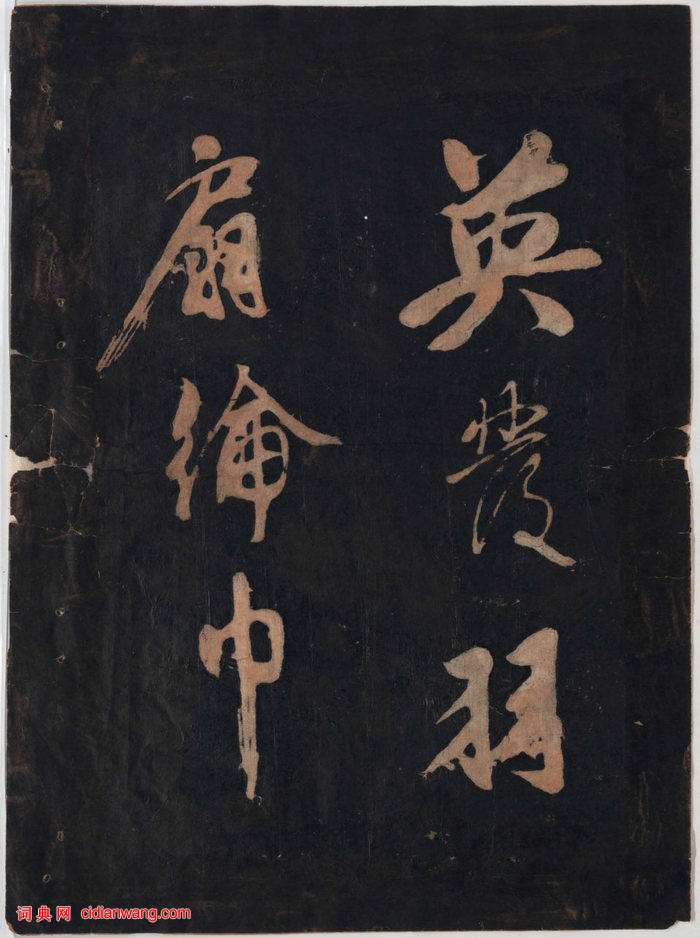 英發羽
扇綸巾
词典网 cidianwang.com